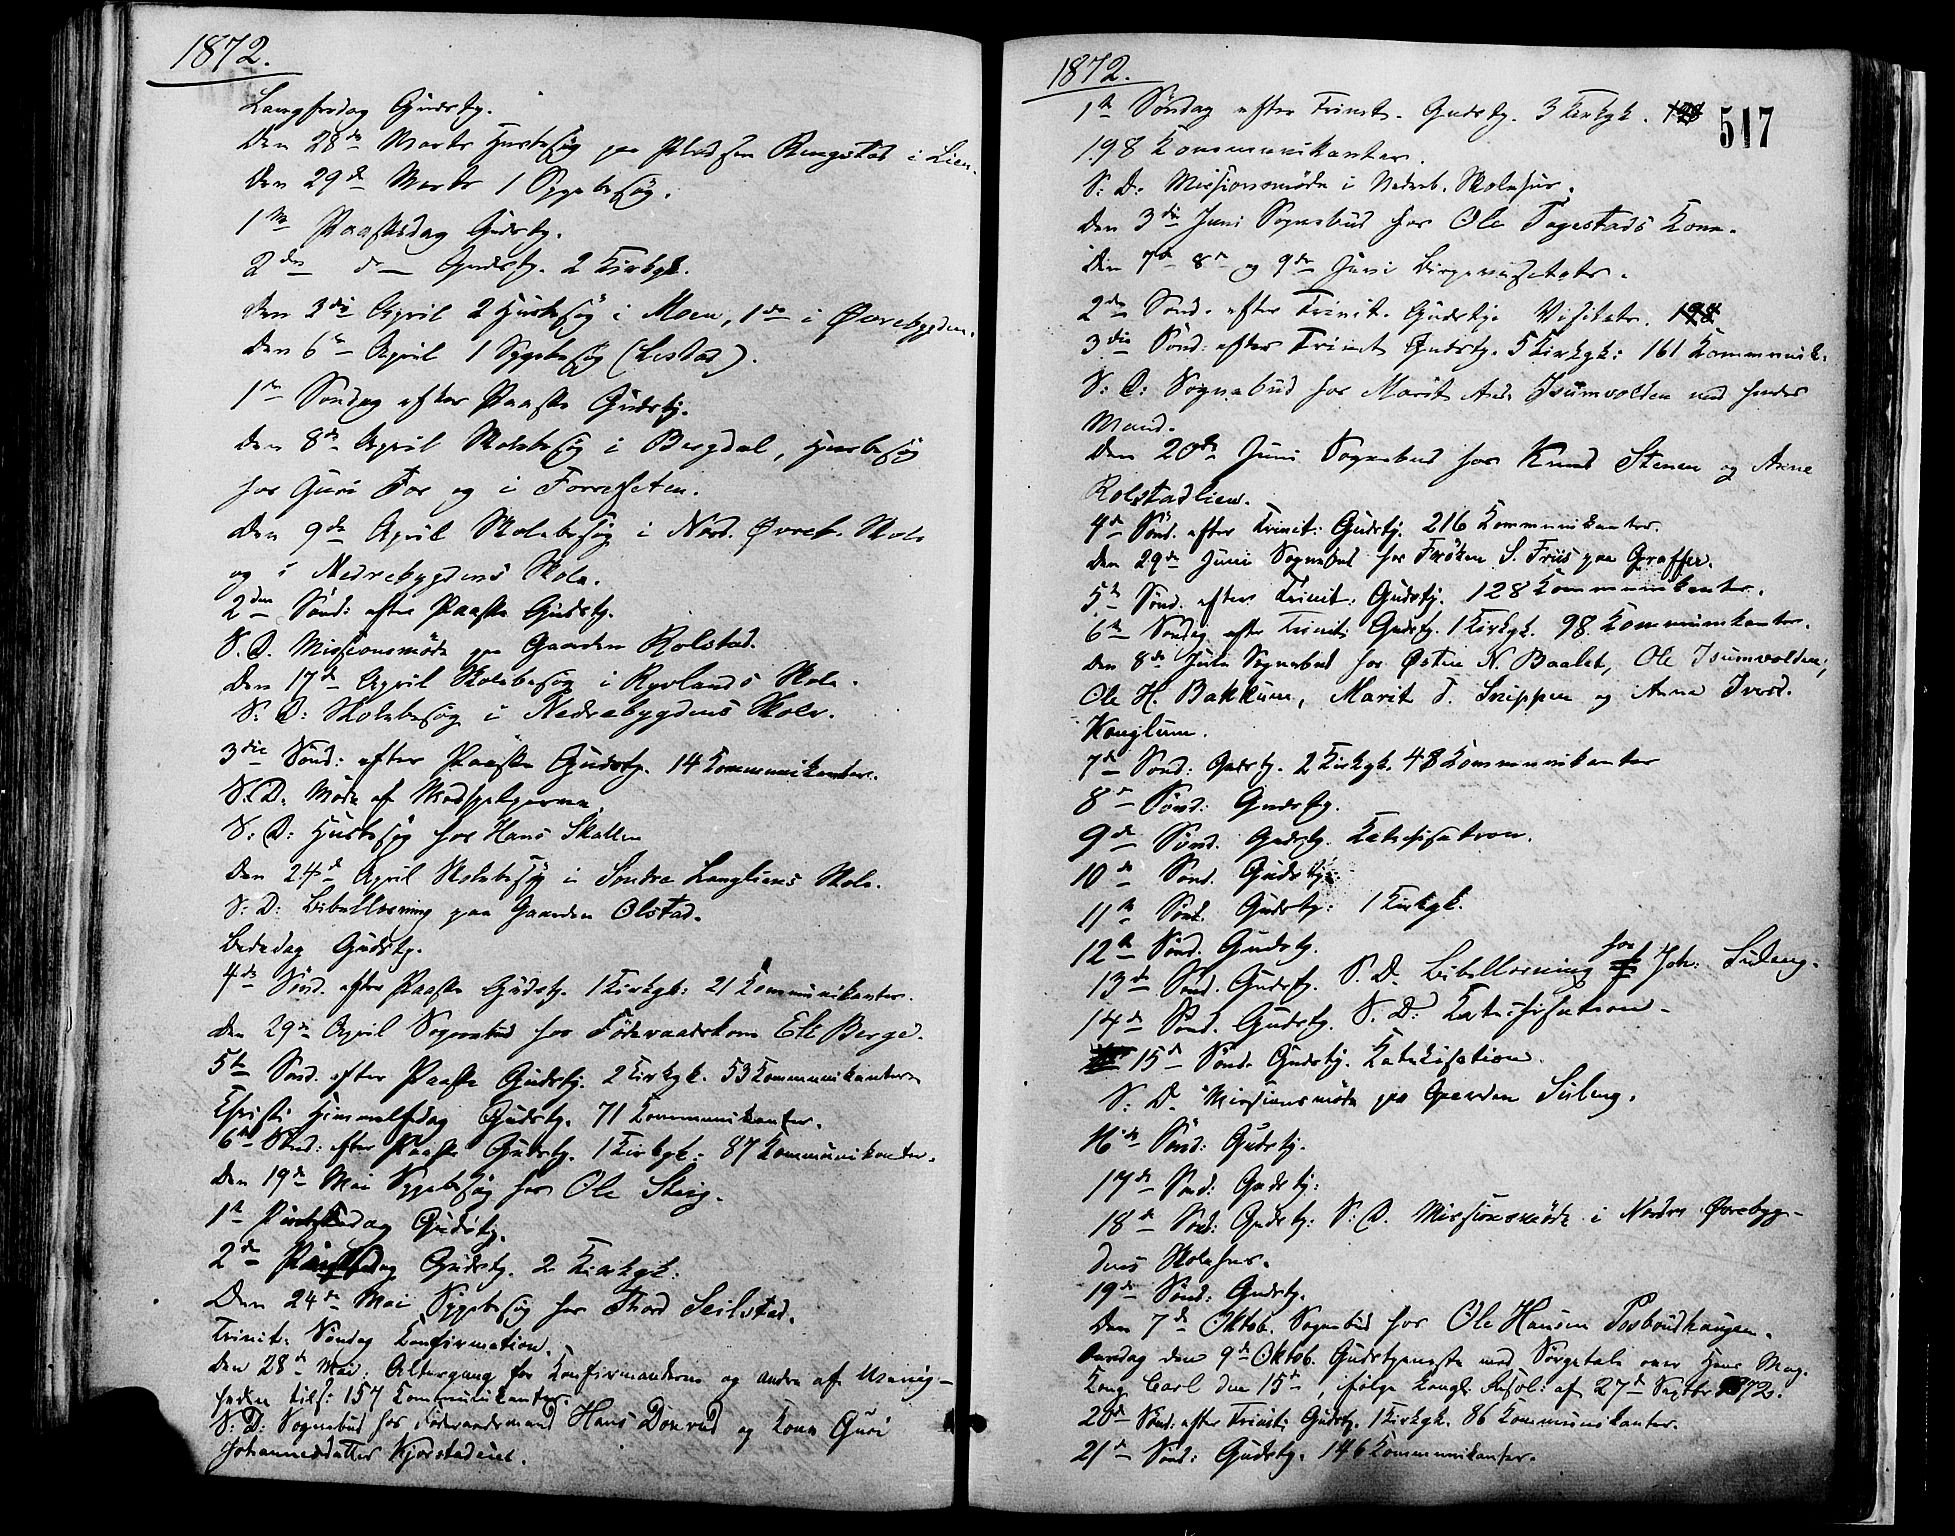 1872.
Langfredag Gudstj.
Den 28de Marts Husbesøg paa Pladsen Ringstad i Lien.
Den 29de Marts 1 Sygebesøg.
1ste Paaskedag Gudstj.
2den do Gudstj. 2 Kirkgk.
Den 3die April 2 Husbesøg i Moen, 1 do i Øvrebygden.
Den 6te April 1 Sygebesøg (Listad).
1ste Søndag efter Paaske Gudstj.
Den 8de April Skolebesøg i Bergdal, Husbesøg
hos Guri Toe og i Forresteten.
Den 9de April Skolebesøg i Nord. Øvreb. Skole
og i Nedrebygdens Skole.
2den Sønd: efter Paaske Gudstj.
S. D. Missionsmøde paa Gaarden Rolstad.
Den 17de April Skolebesøg i Ryslands Skole.
S: D: Skolebesøg i Nedrebygdens Skole.
3die Sønd: efter Paaske Gudstj. 14 Kommunikanter.
S. D. Møde af Medhjelperne.
S: D: Husbesøg hos Hans Skallen
Den 24de April Skolebesøg i Søndre Langliens Skole.
S: D: Bibellæsning paa Gaarden Olstad.
Bededag Gudstj.
4de Sønd. efter Paaske Gudstj. 1 Kirkgk: 21 Kommunikanter.
Den 29de April Sognebud hos Føderaadskone Eli Berge.
5te Sønd. efter Paaske Gudstj. 2 Kirkgk. 53 Kommunikanter
Christi Himmelfdag Gudstj. 71 Kommunikanter.
6te Sønd: efter Paaske Gudstj. 1 Kirkgk: 87 Kommunikanter.
Den 19de Mai Sygebesøg hos Ole Steig.
1ste Pintsedag Gudstj.
2den Pintsedag Gudstj. 2 Kirkgk:
Den 24de Mai Sygebesøg hos Thord Seilstad.
Trinit. Søndag Konfirmation.
Den 28de Mai: Altergang for Konfirmanderne og andre af Menig-
heden tils: 157 Kommunikanter.
S: D: Sognebud hos Føderaadsmand Hans Donrud og Kone Guri
Johannesdatter Kjørstadeiet.
1872.
517
1ste Søndag efter Trinit. Gudstj. 3 Kirkgk. 198
198 Kommunikanter.
S: D: Missionsmøde i Nedreb. Skolehus.
Den 3die Juni Sognebud hos Ole Tagestads Kone.
Den 7de 8de og 9de Juni Bispevisitats.
2den Sønd. efter Trinit. Gudstj. Visitats. 198
3die Sønd: efter Trinit Gudstj. 5 Kirkgk: 161 Kommunik.
S: D: Sognebud hos Marit And. Isumvolden med hendes
Mand.
Den 20de Juni Sognebud hos Knud Stenen og Anne
Rolstadlien.
4de Sønd. efter Trinit: Gudstj. 216 Kommunikanter.
Den 29de Juni Sognebud hos Frøken S. Friis paa Graffer.
5te Sønd. efter Trinit: Gudstj. 128 Kommunikanter.
6te Søndag efter Trinit: Gudstj. 1 Kirkgk. 98 Kommunikanter.
Den 8de Juli Sognebud hos Østen N. Baalet, Ole Isumvolden,
Ole H. Bakkum, Marit T. Snippen og Anne Iversd.
Konglum.
7de Sønd: Gudstj. 2 Kirkgk. 48 Kommunikanter
8de Sønd: Gudstj.
9de Sønd. Gudstj. Katechisation.
10de Sønd. Gudstj.
11te Sønd. Gudstj: 1 Kirkgk.
12te Sønd. Gudstj.
13de Sønd. Gudstj. S. D. Bibellæsning hos Joh: Suleng.
14de Sønd. Gudstj. S: D: Katechisation.
15de Sønd. Gudstj. Katekisation.
S: D. Missionsmøde paa Gaarden Suleng.
16de Sønd: Gudstj.
17de Sønd: Gudstj:
18de Sønd: Gudstj: S: D. Missionsmøde i Nordre Øvrebyg-
dens Skolehus.
19de Sønd: Gudstj.
Den 7de Oktob. Sognebud hos Ole Hansen Losboudhaugen.
Onsdag den 9de Oktob. Gudstjeneste med Sørgetale over Hans Maj.
Kong Carl den 15de, ifølge Kongl. Resol: af 27de Septbr. 1872.
20de Sønd. efter Trinit: Gudstj. 1 Kirkgk. 86 Kommunikanter.
21de Sønd: Gudstj. 146 Kommunikanter.